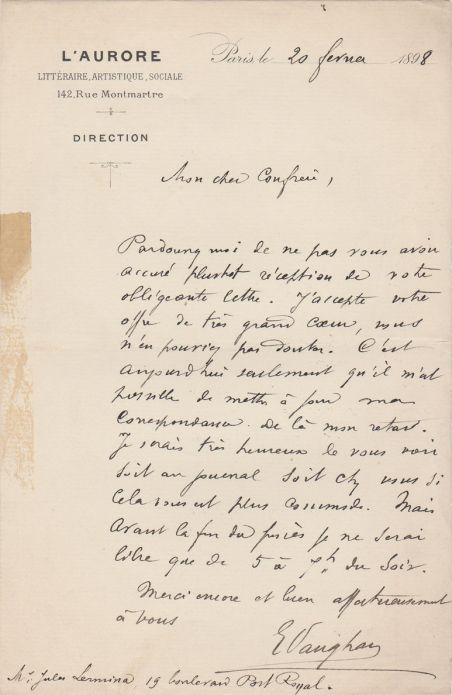 L'AURORE
LITTÉRAIRE, ARTISTIQUE, SOCIALE
142, Rue Montmartre
DIRECTION
Paris, le 20 février 1898
Mon cher Confrère,
Pardonnez moi de ne pas vous avoir
accusé plustôt réception de votre
obligeante lettre. J'accepte votre
offre de très grand cœur, vous
n'en pouviez pas douter. C'est
aujourd'hui seulement qu'il m'est
possible de mettre à jour ma
correspondance. De là mon retard.
Je serais très heureux de vous voir
soit au journal soit chez vous si
cela vous est plus commode. Mais
avant la fin du procès je ne serai
libre que de 5 à 7h du soir.
Merci encore et bien affectueusement
à vous
E Vaughan
Mr Jules Lermina 19 boulevard Port Royal.